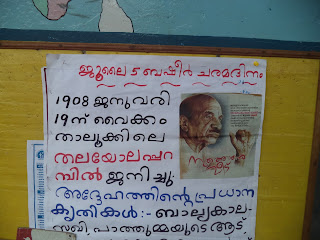 ജൂലൈ 5 ബഷീർ ചരമദിനം
1908 ജനുവരി
19ന് വൈക്കം
താലൂക്കിലെ
തലയോലപ്പറ
മ്പിൽ ജനിച്ചു.
അദ്ദേഹത്തിന്റെ പ്രധാന
കൃതികൾ :- ബാല്യകാല-
സഖി, പാത്തുമ്മയുടെ ആട്,